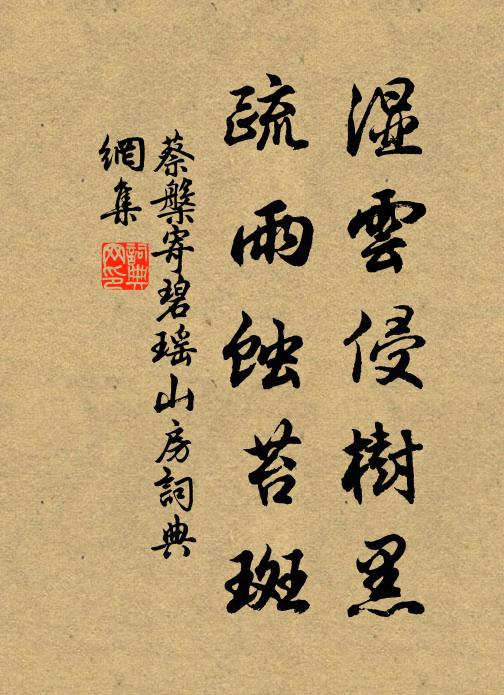 湿雲侵樹黑
疏雨蝕苔斑
蔡槃寄碧瑶山房詞典
網集
詞典
网印